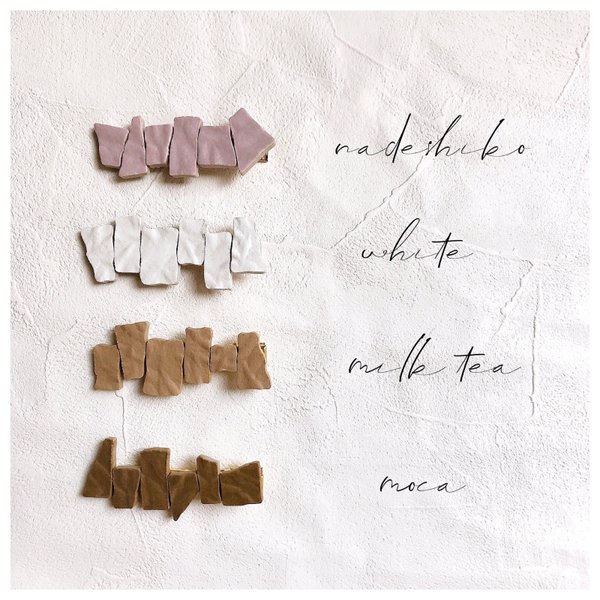 nadeshiko
white
milk tea
moca